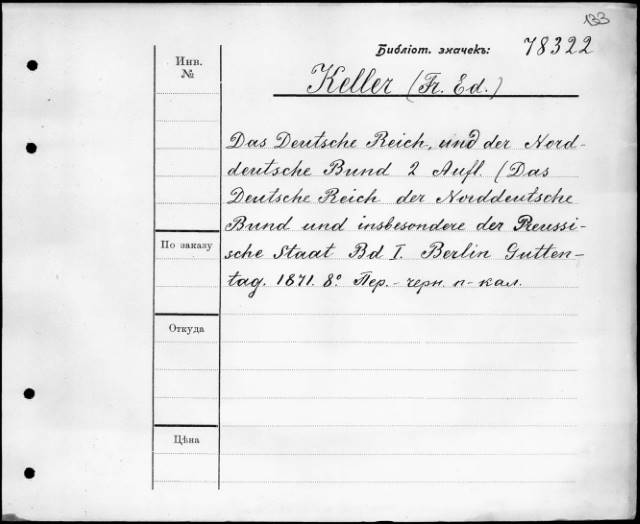 133
Библіот. значекъ: 78322
Инв.
№
Keller (Fr. Ed.)
Das Deutsche Reich, und der Nord-
deutsche Bund 2 Aufl. (Das
Deutsche Reich der Norddeutsche
Bund und insbesondere der Preussi-
По заказу
sche Staat Bd I. Berlin Gutten-
tag. 1871. 8º Пер.- черн. п-кал.
Откуда
Цѣна